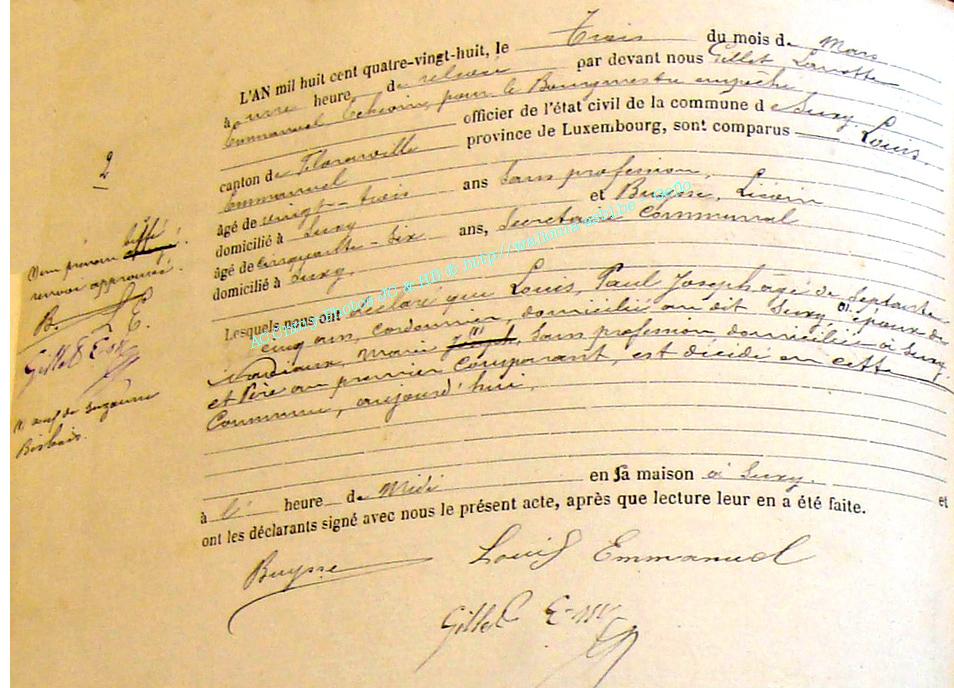 L'AN mil huit cent quatre-vingt-huit, le Trois du mois de Mars
à onze heure de relevée par devant nous Gillet, Lanotte
Emmanuel, Echevin, pour le Bourgmestre empêché
officier de l'état civil de la commune de Suxy
canton de Florenville province de Luxembourg, sont comparus Louis,
Emmanuel
âgé de vingt-trois ans Sans profession,
domicilié à Suxy et Buysse, Liévin
âgé de cinquante-six ans, Secrétaire Communal
domicilié à Suxy.
Lesquels nous ont déclaré que Louis, Paul Joseph âgé de Septante
cinq ans, cordonnier, domicilié au dit Suxy époux de
Nordiaux, Marie Joseph, sans profession, domiciliée à Suxy
et Père au premier Comparant, est décédé en cette
Commune, aujourd'hui,
à heure de Midi en sa maison à Suxy. et
ont les déclarants signé avec nous le présent acte, après que lecture leur en a été faite.
Buysse Louis Emmanuel
Gillet E
2
Un prénom biffé
renvoi approuvé.
B. L E.
Gillet E
veuf de Suzanne
Archives-Photos JG & HB © http://wallonia-asbl.be